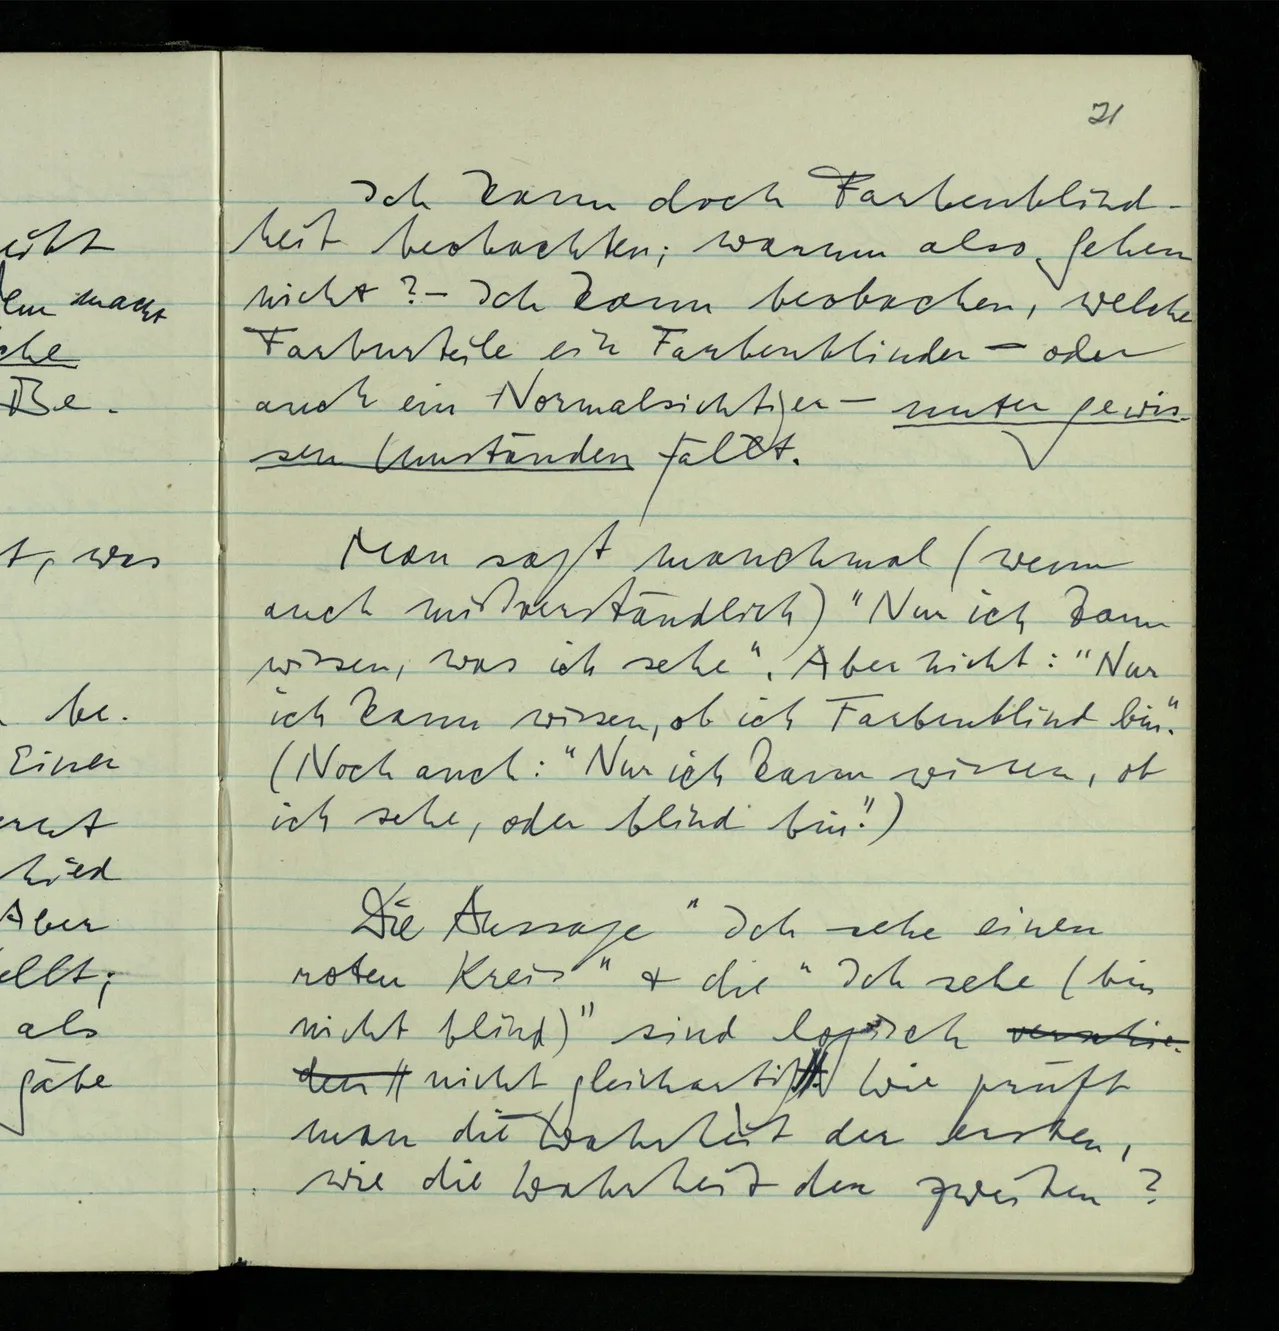 eibt
macht
che
Be-
t, was
be-
Einer
hied
Aber
ellt;
als
gäbe
21
Ich kann doch Farbenblind-
heit beobachten; warum also Sehen
nicht? – Ich kann beobachen, welche
Farburteile ein Farbenblinder – oder
auch ein Normalsichtiger – unter gewis-
sen Umständen fällt.
Man sagt manchmal (wenn
auch mißverständlich) "Nur ich kann
wissen, was ich sehe". Aber nicht: "Nur
ich kann wissen, ob ich Farbenblind bin".
(Noch auch: "Nur ich kann wissen, ob
ich sehe, oder blind bin".)
Die Aussage "Ich sehe einen
roten Kreis" & die "Ich sehe (bin
nicht blind)" sind logisch verschie-
den // nicht gleichartig //. Wie prüft
man die Wahrheit der ersten,
wie die Wahrheit der zweiten?